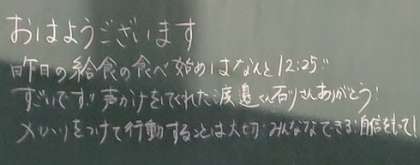 おはようございます
昨日の給食の食べ始めはなんと12:25!!
すごいです!声かけをしてくれた渡邉くん石川さんありがとう!
メリハリをつけて行動することは大切!みんななできる!自信をもって!